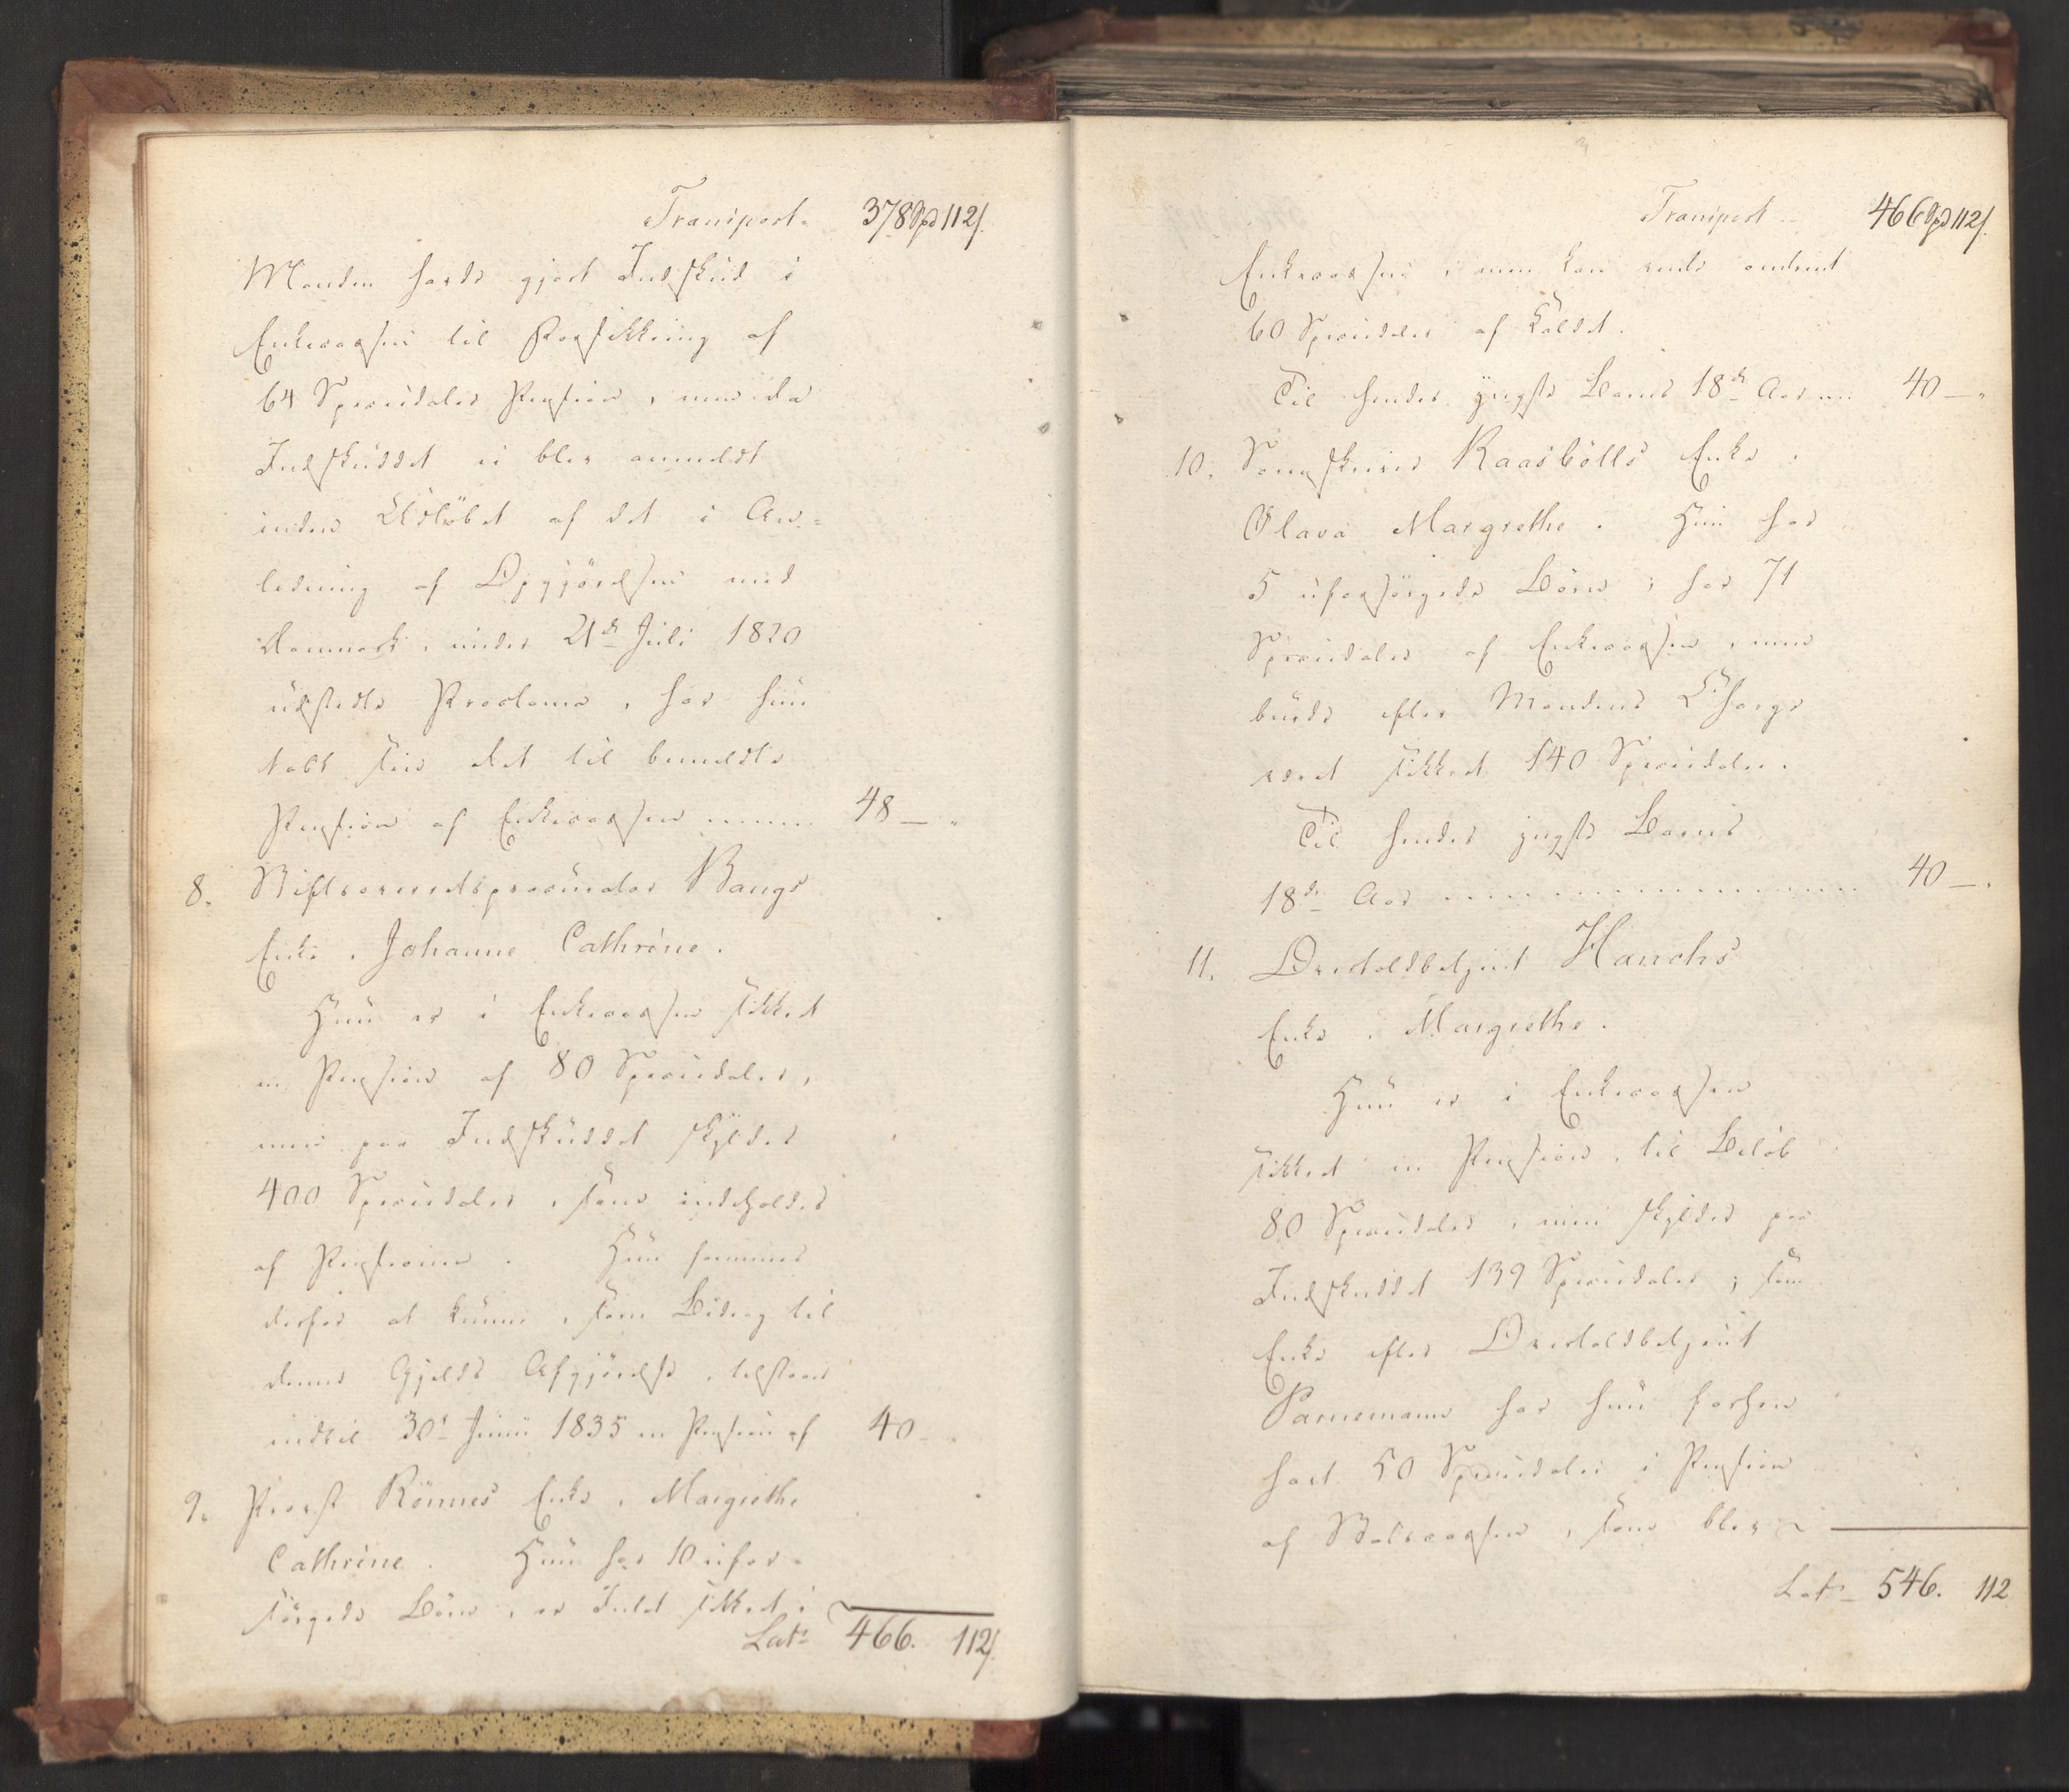 Transport. 378 Spd 112 s.
Manden havde gjort Indskud i
Enkecassen til Forsikkring af
64 Speciedalers Pension, men da
Indskuddet ei blev anmeldt
inden Udløbet af det i An-
ledning af Opgjørelsen med
Danmark, under 21de Juli 1820
udstedte Proclama, har hun
tabt sin Ret til bemeldte
Pension af Enkecassen 48 — "
8. Stiftsoverretsprocurator Bangs
Enke, Johanne Cathrine.
Hun er i Enkecassen sikkret
en Pension af 80 Speciedaler,
men paa Indskuddet skyldes
400 Speciedaler, som indeholdes
af Pensionen. Hun formenes
derfor at kunne, som Bidrag til
denne Gjelds Afgjørelse, tilstaaes
indtil 30te Junii 1835 en Pension af 40 — "
9. Provst Rönnes Enke, Margrethe
Cathrine. Hun har 10 ufor-
sörgede Börn, er Intet sikkret i
Lats 466. 112 s.
Transport 466 Spd 112 s.
Enkecassen, men kan vente omtrent
60 Speciedaler af Kaldet.
Til hendes yngste Barns 18de Aar 40 — "
10. Sorenskriver Raasbölls Enke,
Olava Margrethe. Hun har
5 uforsörgede Börn; har 71
Speciedaler af Enkecassen, men
burde efter Mandens Gage
været sikkret 140 Speciedaler.
Til hendes yngste Barns
18de Aar 40 — "
11. Overtoldbetjent Hanchs
Enke, Margrethe.
Hun er i Enkecassen
sikkret en Pension, til Belöb
80 Speciedaler, men skyldes paa
Indskuddet 139 Speciedaler; som
Enke efter Overtoldbetjent
Parnemann har hun forhen
havt 50 Speciedaler i Pension
af Statscassen, som blev
Lats 546. 112